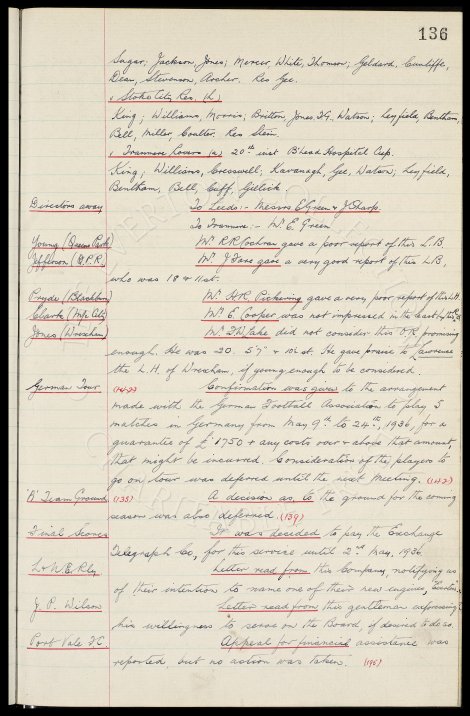 136
Sagar; Jackson, Jones; Mercer, White, Thomson; Geldard, Cunliffe,
Dean, Stevenson, Archer. Res Gee.
v Stoke City Res. (h.)
King; Williams, Morris; Britton, Jones T.G. Watson; Leyfield, Bentham,
Bell, Miller, Coulter. Res Stein.
v Tranmere Rovers (a) 20th inst B'head Hospital Cup.
King; Williams, Cresswell, Kavanagh, Gee, Watson; Leyfield,
Bentham, Bell, Cuff, Gillick
Directors away To Leeds:- Messrs E. Green & J Sharp.
To Tranmere:- Mr. E. Green
Young (Queens Park) Mr. R.R. Cochran gave a poor report of this L.B.
Jefferson (Q.P.R.) Mr. J Fare gave a very good report of this L.B.
who was 18 & 11 st.
Pryde (Blackburn) Mr. H.R. Pickering gave a very poor report of this L.H.
Clark (M/c City) Mr. E. Cooper was not impressed in the least by this
Jones (Wrexham) Mr. did not consider this O.R. promising
enough. He was 20. 5'7" & 10½ st. He gave praise to Lawrence
the L.H. of Wrexham, if young enough to be considered.
German Tour (142) Confirmation was given to the arrangement
made with the German Football Association to play 5
matches in Germany from May 9th to 24th, 1936, for a
guarantee of £1750 & any costs over & above that amount,
that might be incurred. Consideration of the players to
go on tour was deferred until the next meeting. (142)
'A' Team Ground (135) A decision as to the ground for the coming
season was also deferred. (139)
Final Scores It was decided to pay the Exchange
Telegraph Co, for this service until 2nd May, 1936.
L & N.E. Rly Letter read from this Company, notifying us
of their intention to name one of their new engines, "Everton".
J. P. Wilson Letter read from this gentleman expressing
his willingness to serve on the Board, if desired to do so.
Port Vale F.C. Appeal for financial assistance was
reported but no action was taken. (196)